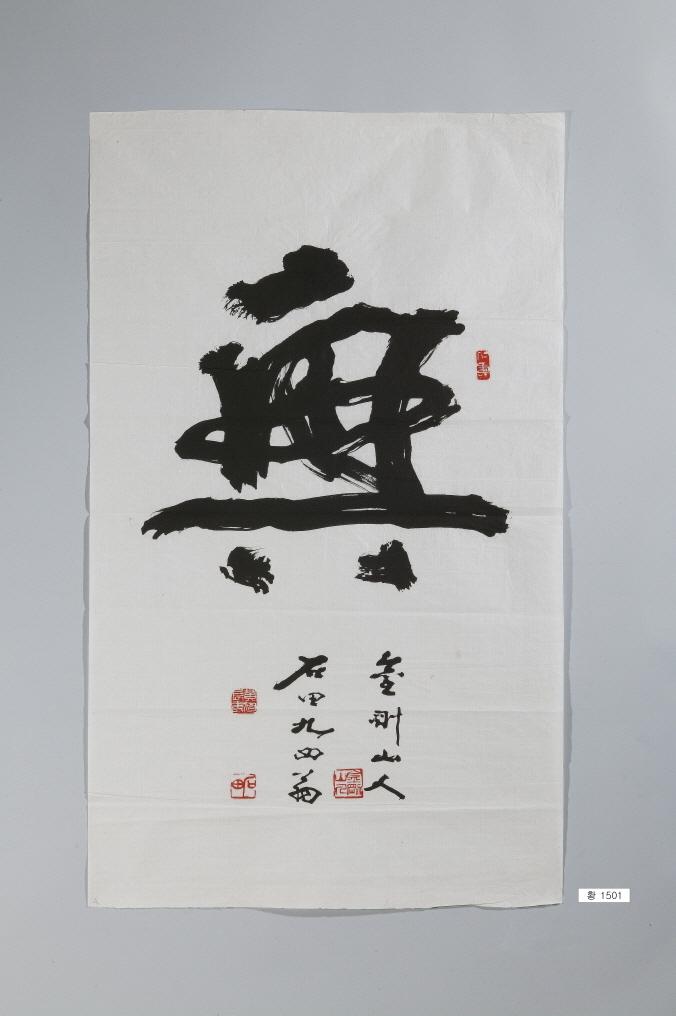 無
金剛山人
石田九四翁
황 1501